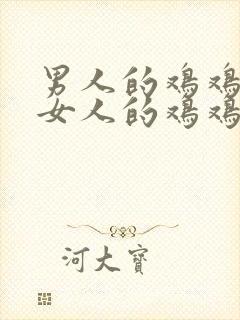 男人的鸡鸡
女人的鸡鸡
河大宝